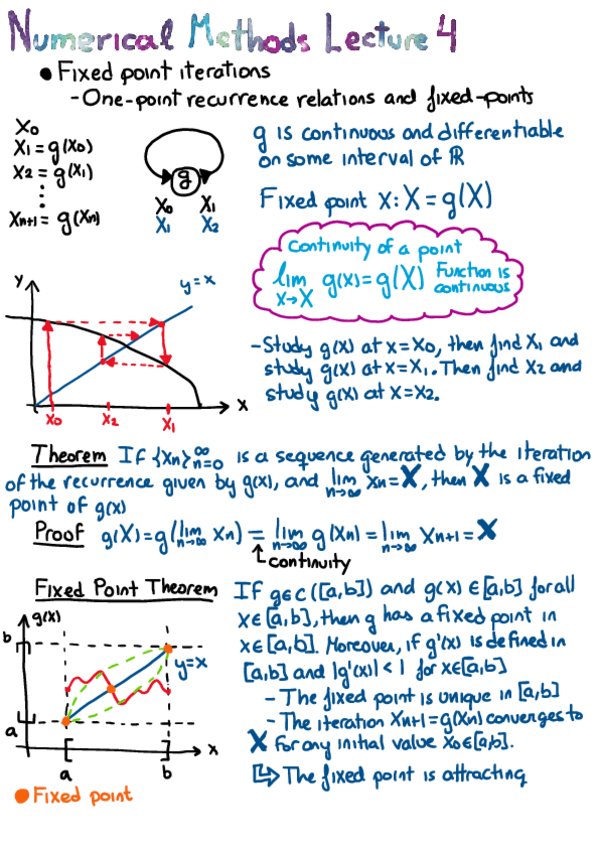 Numerical Methods Lecture 4
• Fixed point iterations
- One-point recurrence relations and fixed-points
X₀
X₁ = g(X₀)
X₂ = g(X₁)
⋮
Xₙ₊₁ = g(Xₙ)
g
X₀ X₁
X₁ X₂
g is continuous and differentiable
on some interval of ℝ
Fixed point X: X = g(X)
Continuity of a point
lim g(x) = g(X) Function is
x→X continuous
y
y=x
x
X₀ X₂ X₁
- Study g(x) at x=X₀, then find X₁ and
study g(x) at x=X₁. Then find X₂ and
study g(x) at x=X₂.
Theorem If {Xn}∞n=0 is a sequence generated by the iteration
of the recurrence given by g(x), and lim n→∞ Xn = X, then X is a fixed
point of g(x)
Proof g(X) = g(lim n→∞ Xn) = lim n→∞ g(Xn) = lim n→∞ Xn+1 = X
↑ continuity
Fixed Point Theorem If g∈C([a,b]) and g(x)∈[a,b] for all
x∈[a,b], then g has a fixed point in
x∈[a,b]. Moreover, if g'(x) is defined in
[a,b] and |g'(x)| < 1 for x∈[a,b]
- The fixed point is unique in [a,b]
- The iteration Xn+1 = g(Xn) converges to
X for any initial value X₀∈[a,b].
↳ The fixed point is attracting
g(x)
b
y=x
a
x
a b
• Fixed point